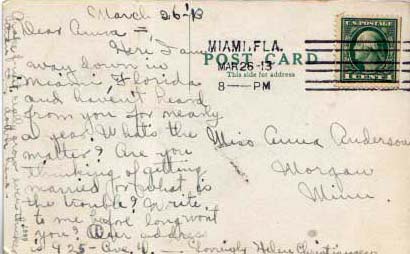 March 26-13
Dear Anna -
Here I am
away down in
Miami Florida
and haven't heard
from you for nearly
a year. Whats the
matter? Are you
thinking of getting
married or what is
the trouble? Write
to me before long wont
you? Our address
is 425- Ave. - Lovingly Helen
MIAMI, FLA.
MAR 26-13
8-PM
POST CARD
This side for address
U.S. POSTAGE
1 CENT 1
Miss Anna Anderson
Morgan
Minn.